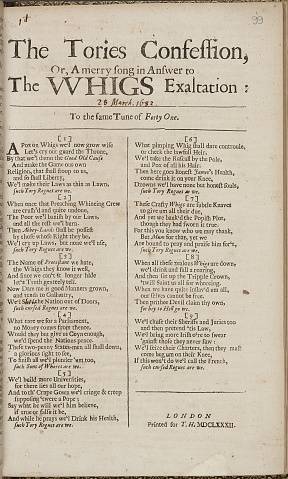 1st
99
The Tories Confession,
Or, A merry song in Answer to
The WHIGS Exaltation:
28 March. 1682.
To the same Tune of Forty One.
[1]
A Pox on Whigs we'l now grow wise
Let's cry out guard the Throne,
By that we'l damn the Good Old Cause
And make the Game our own
Religion, that shall stoop to us,
and so shall Liberty,
We'l make their Laws as thin as Lawn,
such Tory Rogues are we.
[2]
When once that Preaching Whining Crew
are crush'd and quite undone,
The Poor we'l banish by our Laws
and all the rest we'l burn.
Then Abbey-Lands shall be possest
by those whose Right they be,
We'l cry up Laws, but none we'l use,
Such Tory Rogues are we.
[3]
The Name of Protestant we hate,
the Whigs they know it well,
And since we can't no longer hide
let's Truth genteely tell.
Now Dam me is good Manners grown,
and tends to Gallantry,
We'l the Nation out of Doors,
such cursed Rogues are we.
[4]
What care we for a Parliament,
no Money comes from thence.
Would they but give us Coyn enough,
we'd spend the Nations pence.
These two-penny States-men all shall down,
a glorious sight to see,
To finish all we'l plunder 'em too,
such Sons of Whores are we.
[5]
We'l build more Universities,
for there lies all our hope,
And to th' Crape Gown we'l cringe & creep
supposing 'twere a Pope;
Say what he will we'l him believe,
if true or false it be,
And while he prays we'l Drink his Health,
such Tory Rogues are we.
[6]
What pimping Whig shall dare controule,
or check the lawfull Heir,
We'l take the Rascall by the Pole,
and Pox of all his Hair.
Then here goes honest James's Health,
come drink it on your Knee,
Drown we'l have none but honest souls,
such Tory Rogues are we.
[7]
These Crafty Whigs are subtle Knaves
to give um all their due,
And yet we baulk'd the Popish Plot,
though they had sworn it true.
For this you know who we may thank,
But Mum for that, yet we
Are bound to pray and praise him for't,
such Tory Rogues are we.
[8]
When all these zealous Whigs are down,
we'l drink and fall a roaring,
And then set up the Tripple Crown,
'twill Saint us all for whoreing.
When we have quite Inslav'd um all,
our selves cannot be free.
Then prithee Devill claim thy own,
for hey to Hell go we.
[9]
We'l chuse their Sheriffs and Juries too
and then pretend 'tis Law,
We'l bring more Irish o're to swear
'gainst those they never saw:
We'l seize their Charters, then they must
come beg um on their Knee,
If this won't do we'l call the French,
such cursed Rogues are we.
LONDON
Printed for T. H. MDCLXXXII.